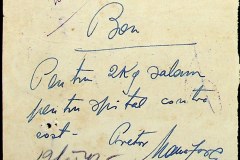 Bon
Pentru 2Kg salam
pentru spital contra
cost-
Pretor